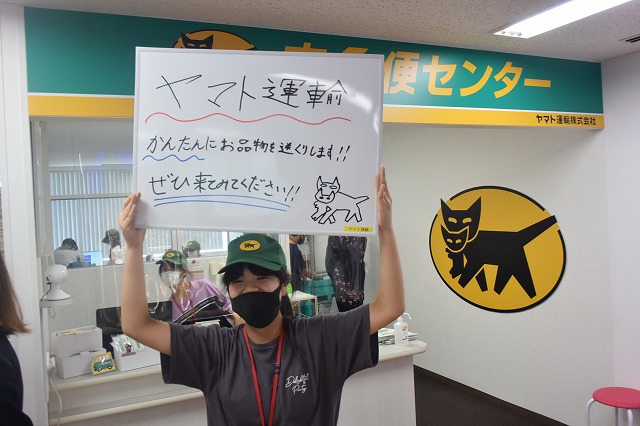 宅急便センター
ヤマト運輸株式会社
ヤマト運輸
かんたんにお品物を送くりします!!
ぜひ来てみてください!!
ヤマト運輸